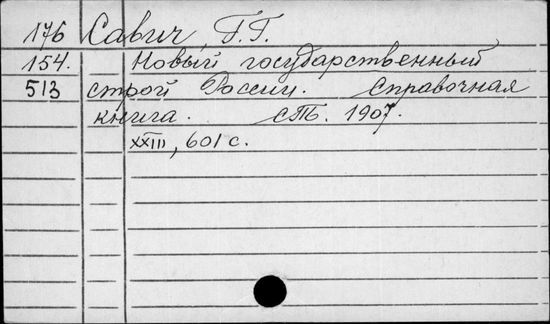 176 Савич, Г.Г.
154. Новый государственный
513 строй России. Справочная
книга. СПБ. 1907.
XXIII, 601 с.